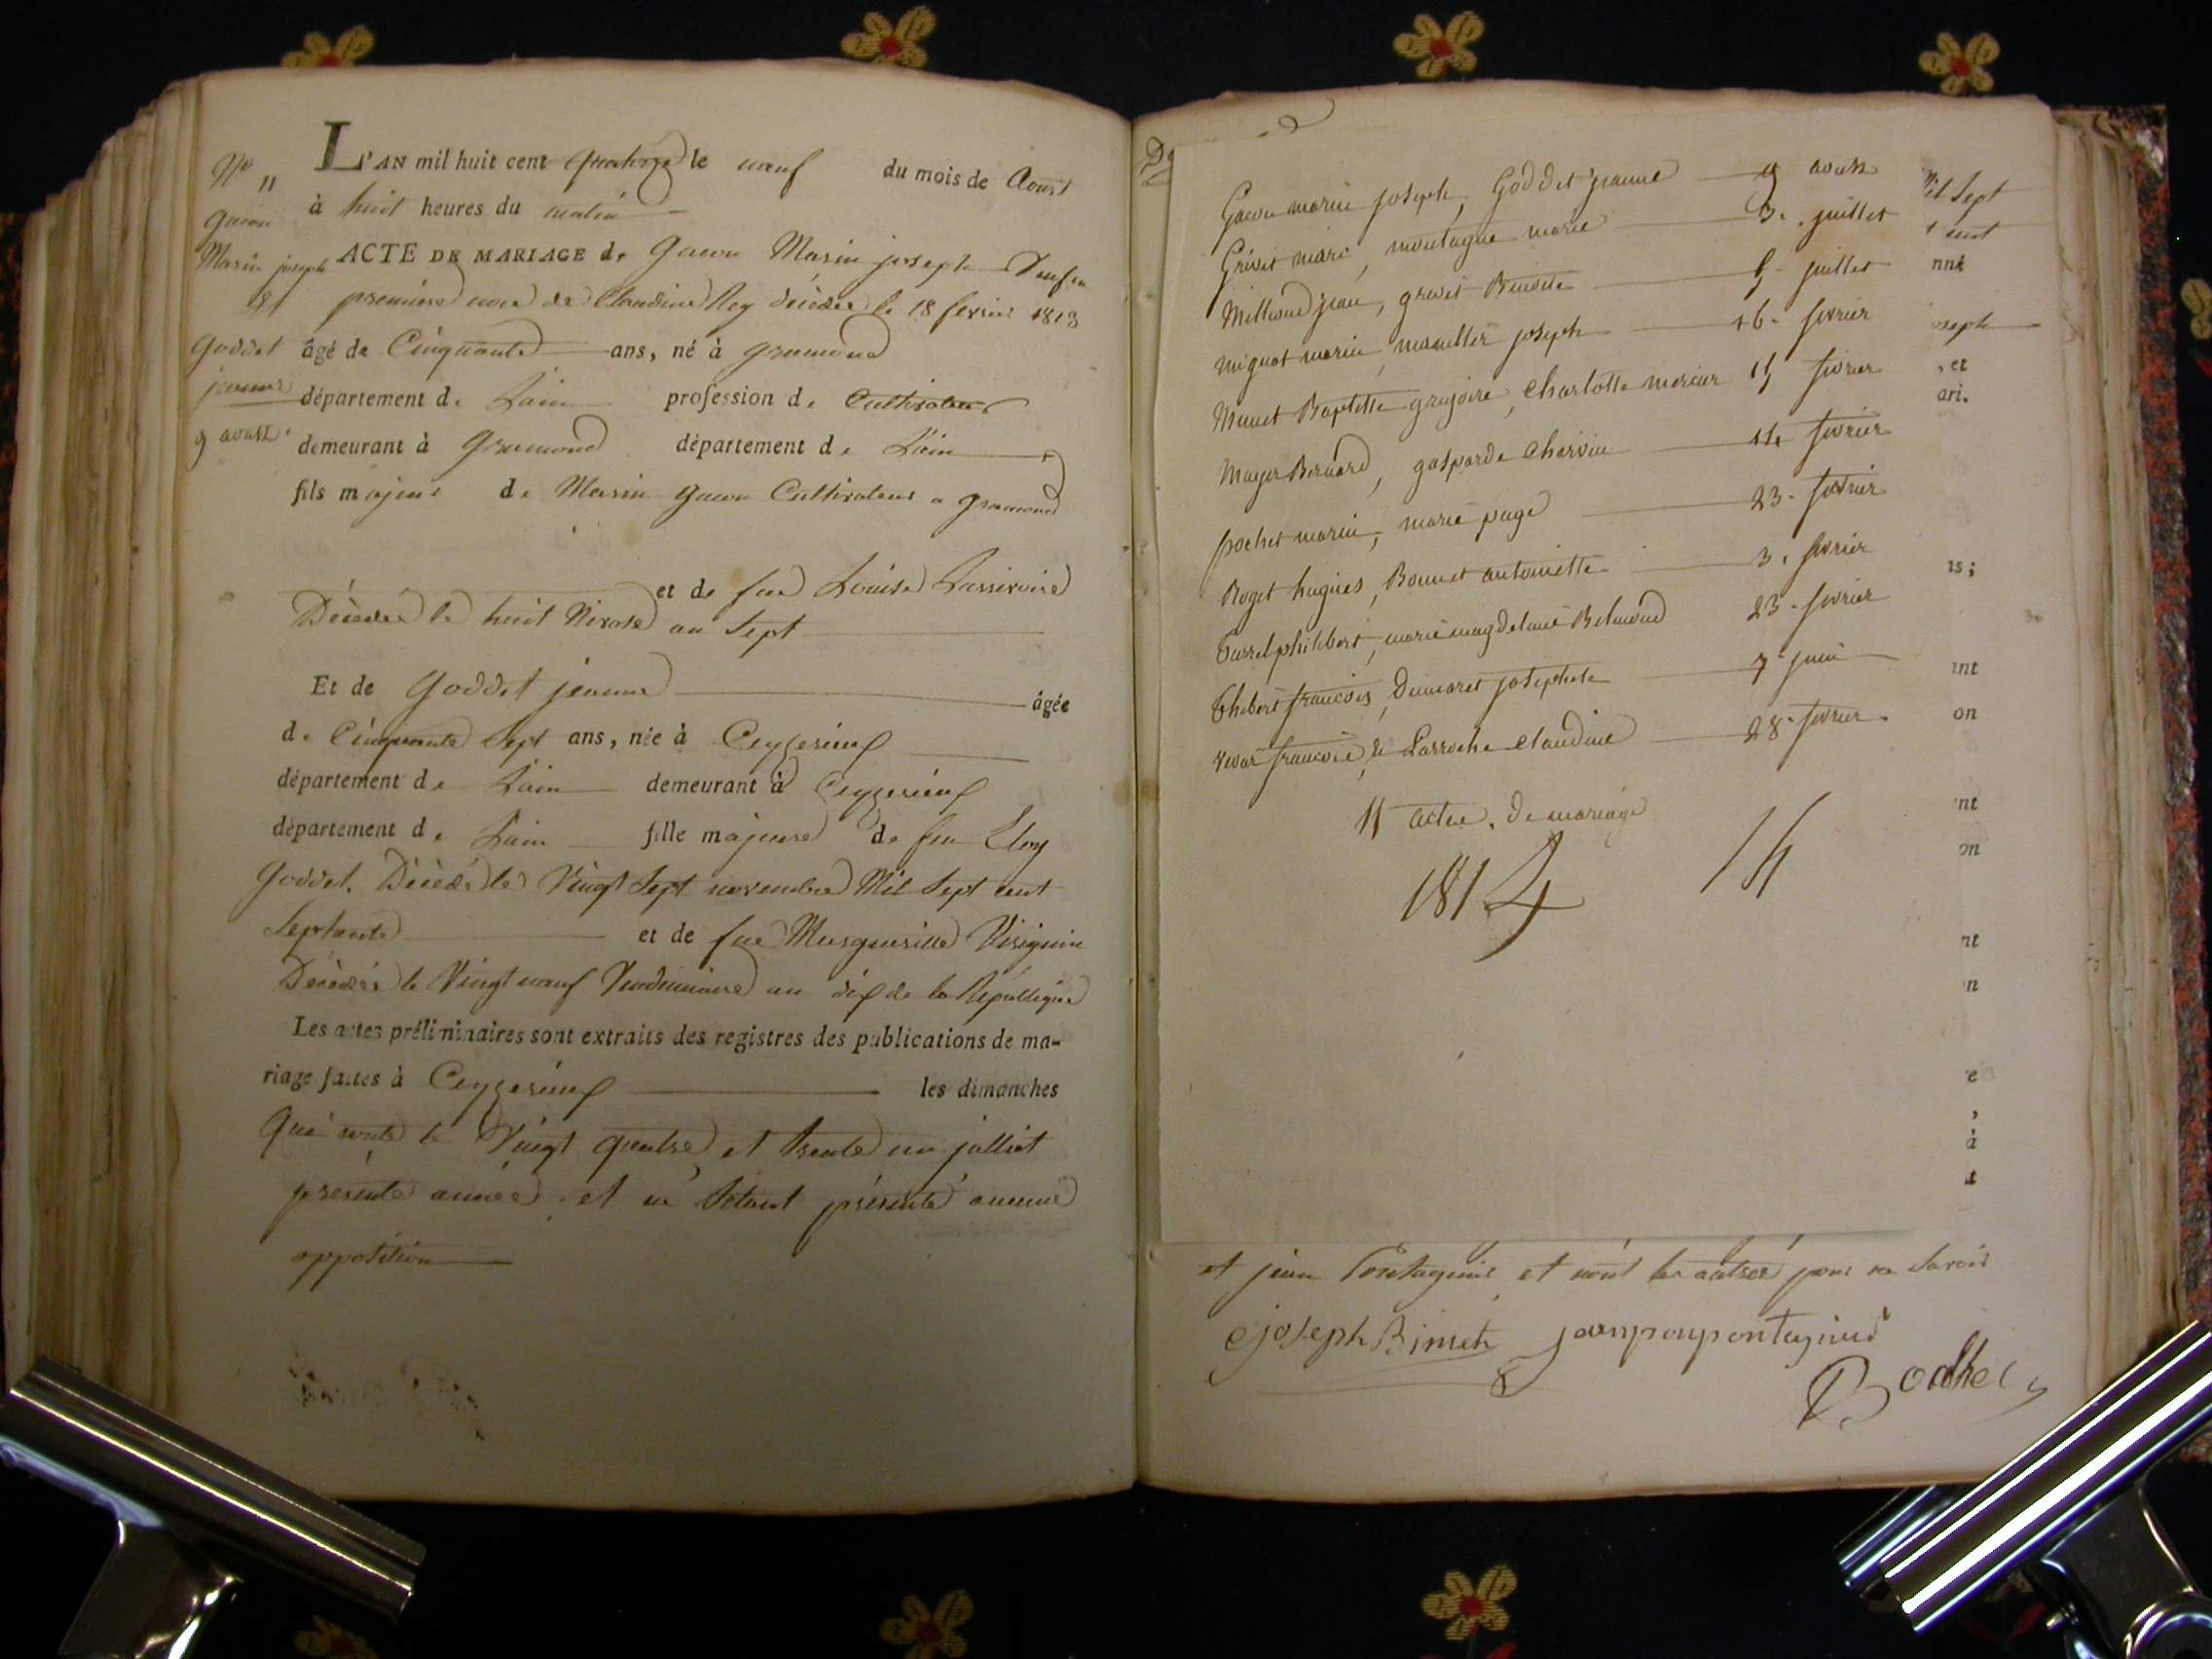 No 11
gacon
Marin joseph
et
goddet
jeanne
9 aoust.
L'AN mil huit cent quatorze le neuf du mois de Aoust
à huit heures du matin
ACTE DE MARIAGE de gacon Marin joseph Veuf en
premiere noce de Claudine Rey décédée le 18 fevrier 1813
âgé de Cinquante ans, né à gramond
département de Lain profession de Cultivateur
demeurant à gramond département de Lain
fils majeur de Marin gacon Cultivateur a gramond
et de feue Louise
Décédée le huit Nivose an Sept
Et de goddet jeanne âgée
de Cinquante Sept ans, née à Ceyzerieux
département de Lain demeurant à Ceyzerieux
département de Lain fille majeure de feu Eloy
goddet. Décédé le Vingt Sept novembre Mil Sept cent
Septante et de feue Marguerite
Décédée le Vingt neuf Vendemiaire an dix de la République
Les actes préliminaires sont extraits des registres des publications de ma-
riage faites à Ceyzerieux les dimanches
Vingt quatre et trente un julliet
présente année. et ne Sétant présenté aucune
opposition
Gacon marin joseph, Goddet jeanne 9 aoust
Grivet marc, montagne marie 3. juillet
Milliand jean, grivet Benoite 5. juillet
mignot marin, joseph 16. fevrier
Munet Baptiste gregoire, Charlotte mercier 15 fevrier
Mayer Bernard, gasparde Charvin 14 fevrier
pochet marin, marie page 23. fevrier
Roget hugues, Bonnet antoinette 3. fevrier
philibert, marie magdelaine Belmond 23. fevrier
Thibert francois, Dumaret josephete 7 juin
francois, & Larroche claudine 28. fevrier.
11 actes. de mariage
1814 14
Mil Sept
t cent
nné
oseph
, et
ari.
is;
ant
on
nt
on
nt
on
e
,
à
t
et jean Pontaginier et nont les autres pour ne Savoir
joseph Bimet
Bodhet